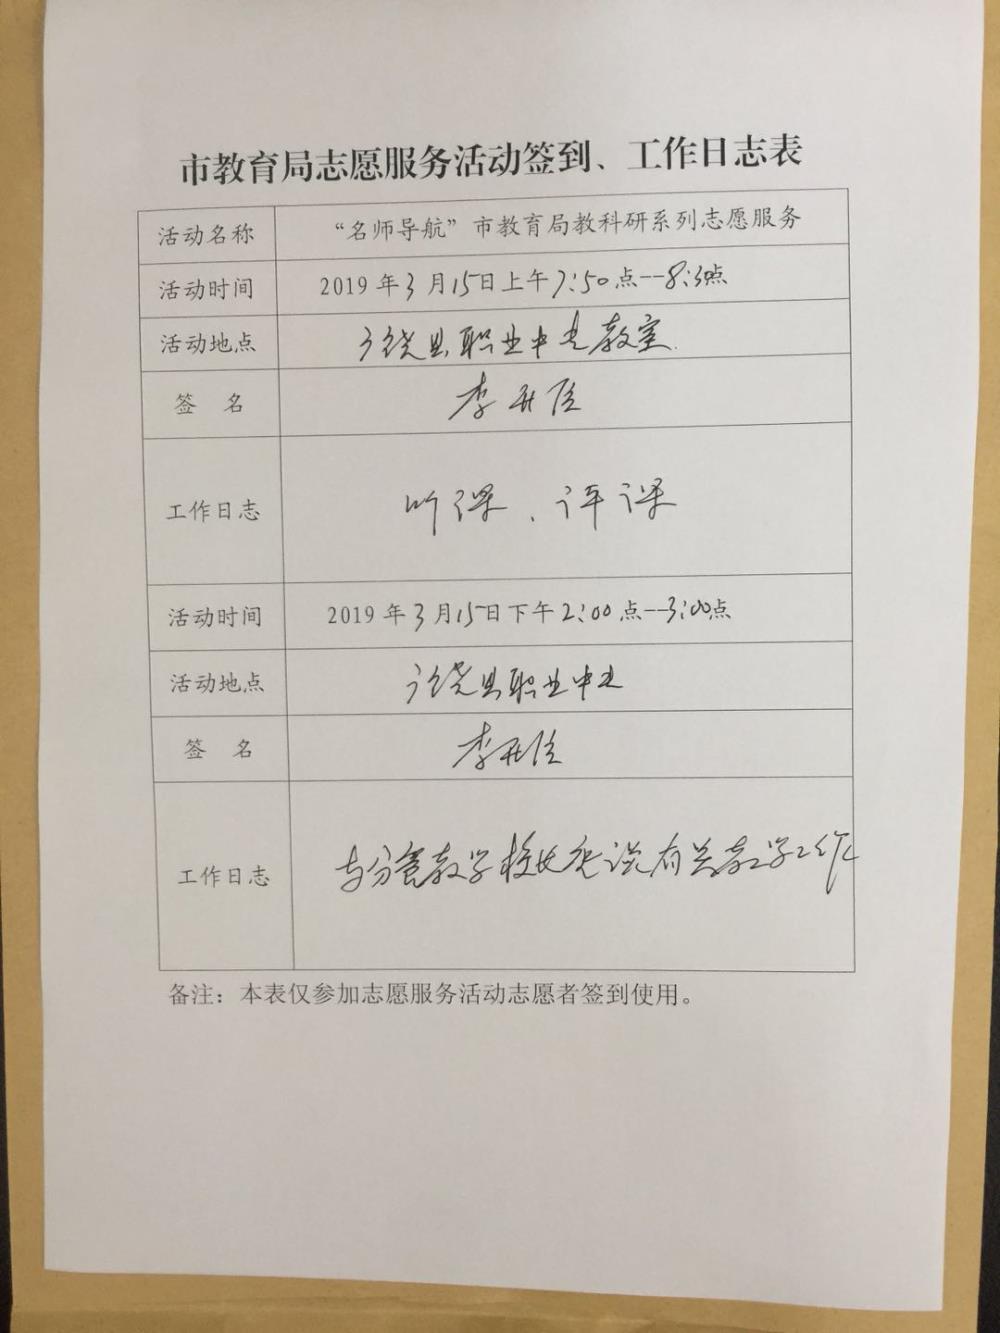 市教育局志愿服务活动签到、工作日志表
活动名称 “名师导航”市教育局教科研系列志愿服务
活动时间 2019年3月15日上午7:50点--8:30点
活动地点 广饶县职业中专教室
签 名 李
工作日志 听课、评课
活动时间 2019年3月15日下午2:00点--3:00点
活动地点 广饶县职业中专
签 名 李
工作日志 与分管教学校长座谈有关教学工作
备注：本表仅参加志愿服务活动志愿者签到使用。